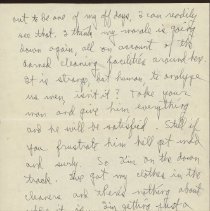 out to be one of my off days. I can readily
see that. I think my morale is going
down again, all on account of the
darned cleaning facilities around here.
It is strange, but human to analyze
us men, isn't it? Take your
man and give him everything
and he will be satisfied. Still if
you frustrate him he'll get mad
and surly. So I'm on the down
track. They got my clothes in the
cleaners and there's nothing about
it is. I'm getting just a